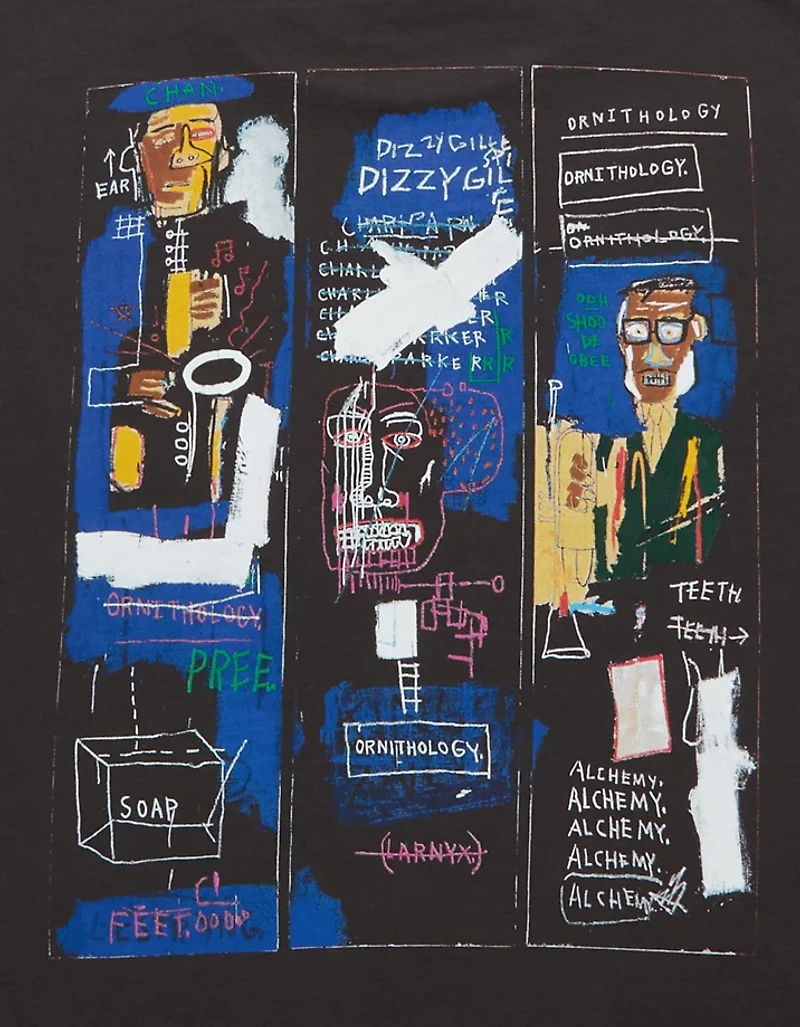 CHAN.
EAR
ORNITHOLOGY.
PREE.
SOAP
FEET.
DIZZYGILLE
SPI
DIZZYGIL
E
CHARL
CHARL
ER
ER
PARKER R
PARKERRR R
ORNITHOLOGY.
(LARNYX.)
ORNITHOLOGY
ORNITHOLOGY.
ORNITHOLOGY.
OOH
SHOO
DE
OBEE
TEETH
TEETH→
ALCHEMY.
ALCHEMY.
ALCHEMY.
ALCHEMY.
ALCHEM